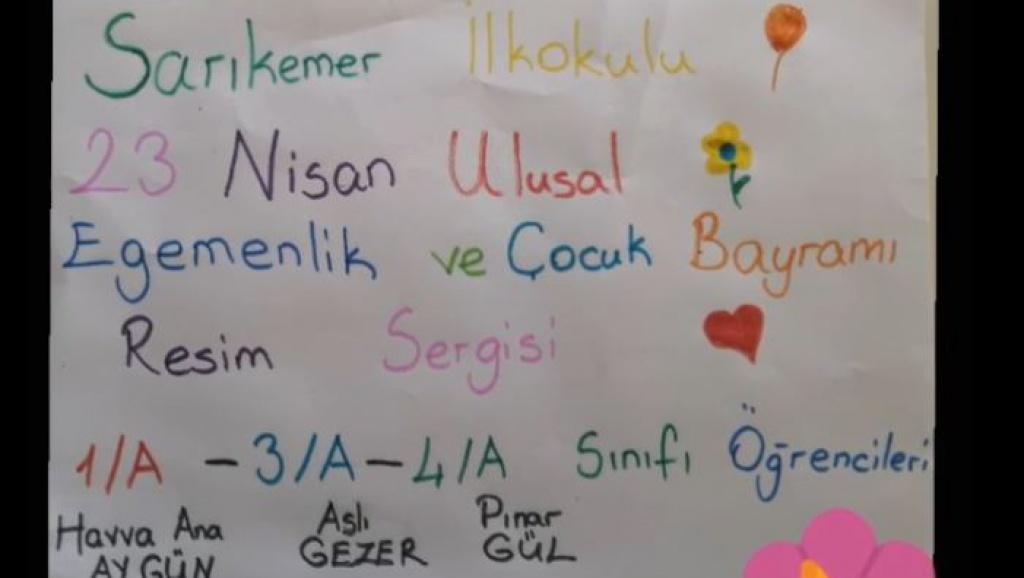 Sarıkemer İlkokulu
23 Nisan Ulusal
Egemenlik ve Çocuk Bayramı
Resim Sergisi
1/A - 3/A - 4/A Sınıfı Öğrencileri
Havva Ana Aslı Pınar
AYGÜN GEZER GÜL